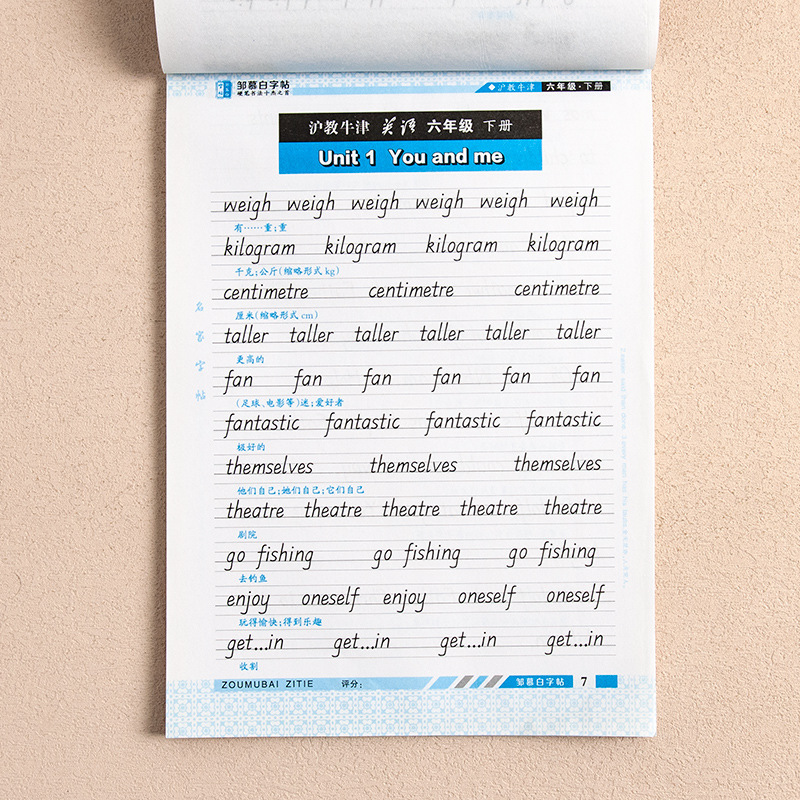 邹慕白字帖
硬笔书法十杰之首
沪教牛津 六年级·下册
沪教牛津 英语 六年级 下册
Unit 1 You and me
weigh weigh weigh weigh weigh weigh
有……重;重
kilogram kilogram kilogram kilogram
千克;公斤(缩略形式 kg)
centimetre centimetre centimetre
厘米(缩略形式 cm)
taller taller taller taller taller taller
更高的
fan fan fan fan fan fan
(足球、电影等)迷;爱好者
fantastic fantastic fantastic fantastic
极好的
themselves themselves themselves
他们自己;她们自己;它们自己
theatre theatre theatre theatre theatre
剧院
go fishing go fishing go fishing
去钓鱼
enjoy oneself enjoy oneself oneself
玩得愉快;得到乐趣
get...in get...in get...in get...in
收割
名家字帖
ZOUMUBAI ZITIE 评分: 邹慕白字帖 7